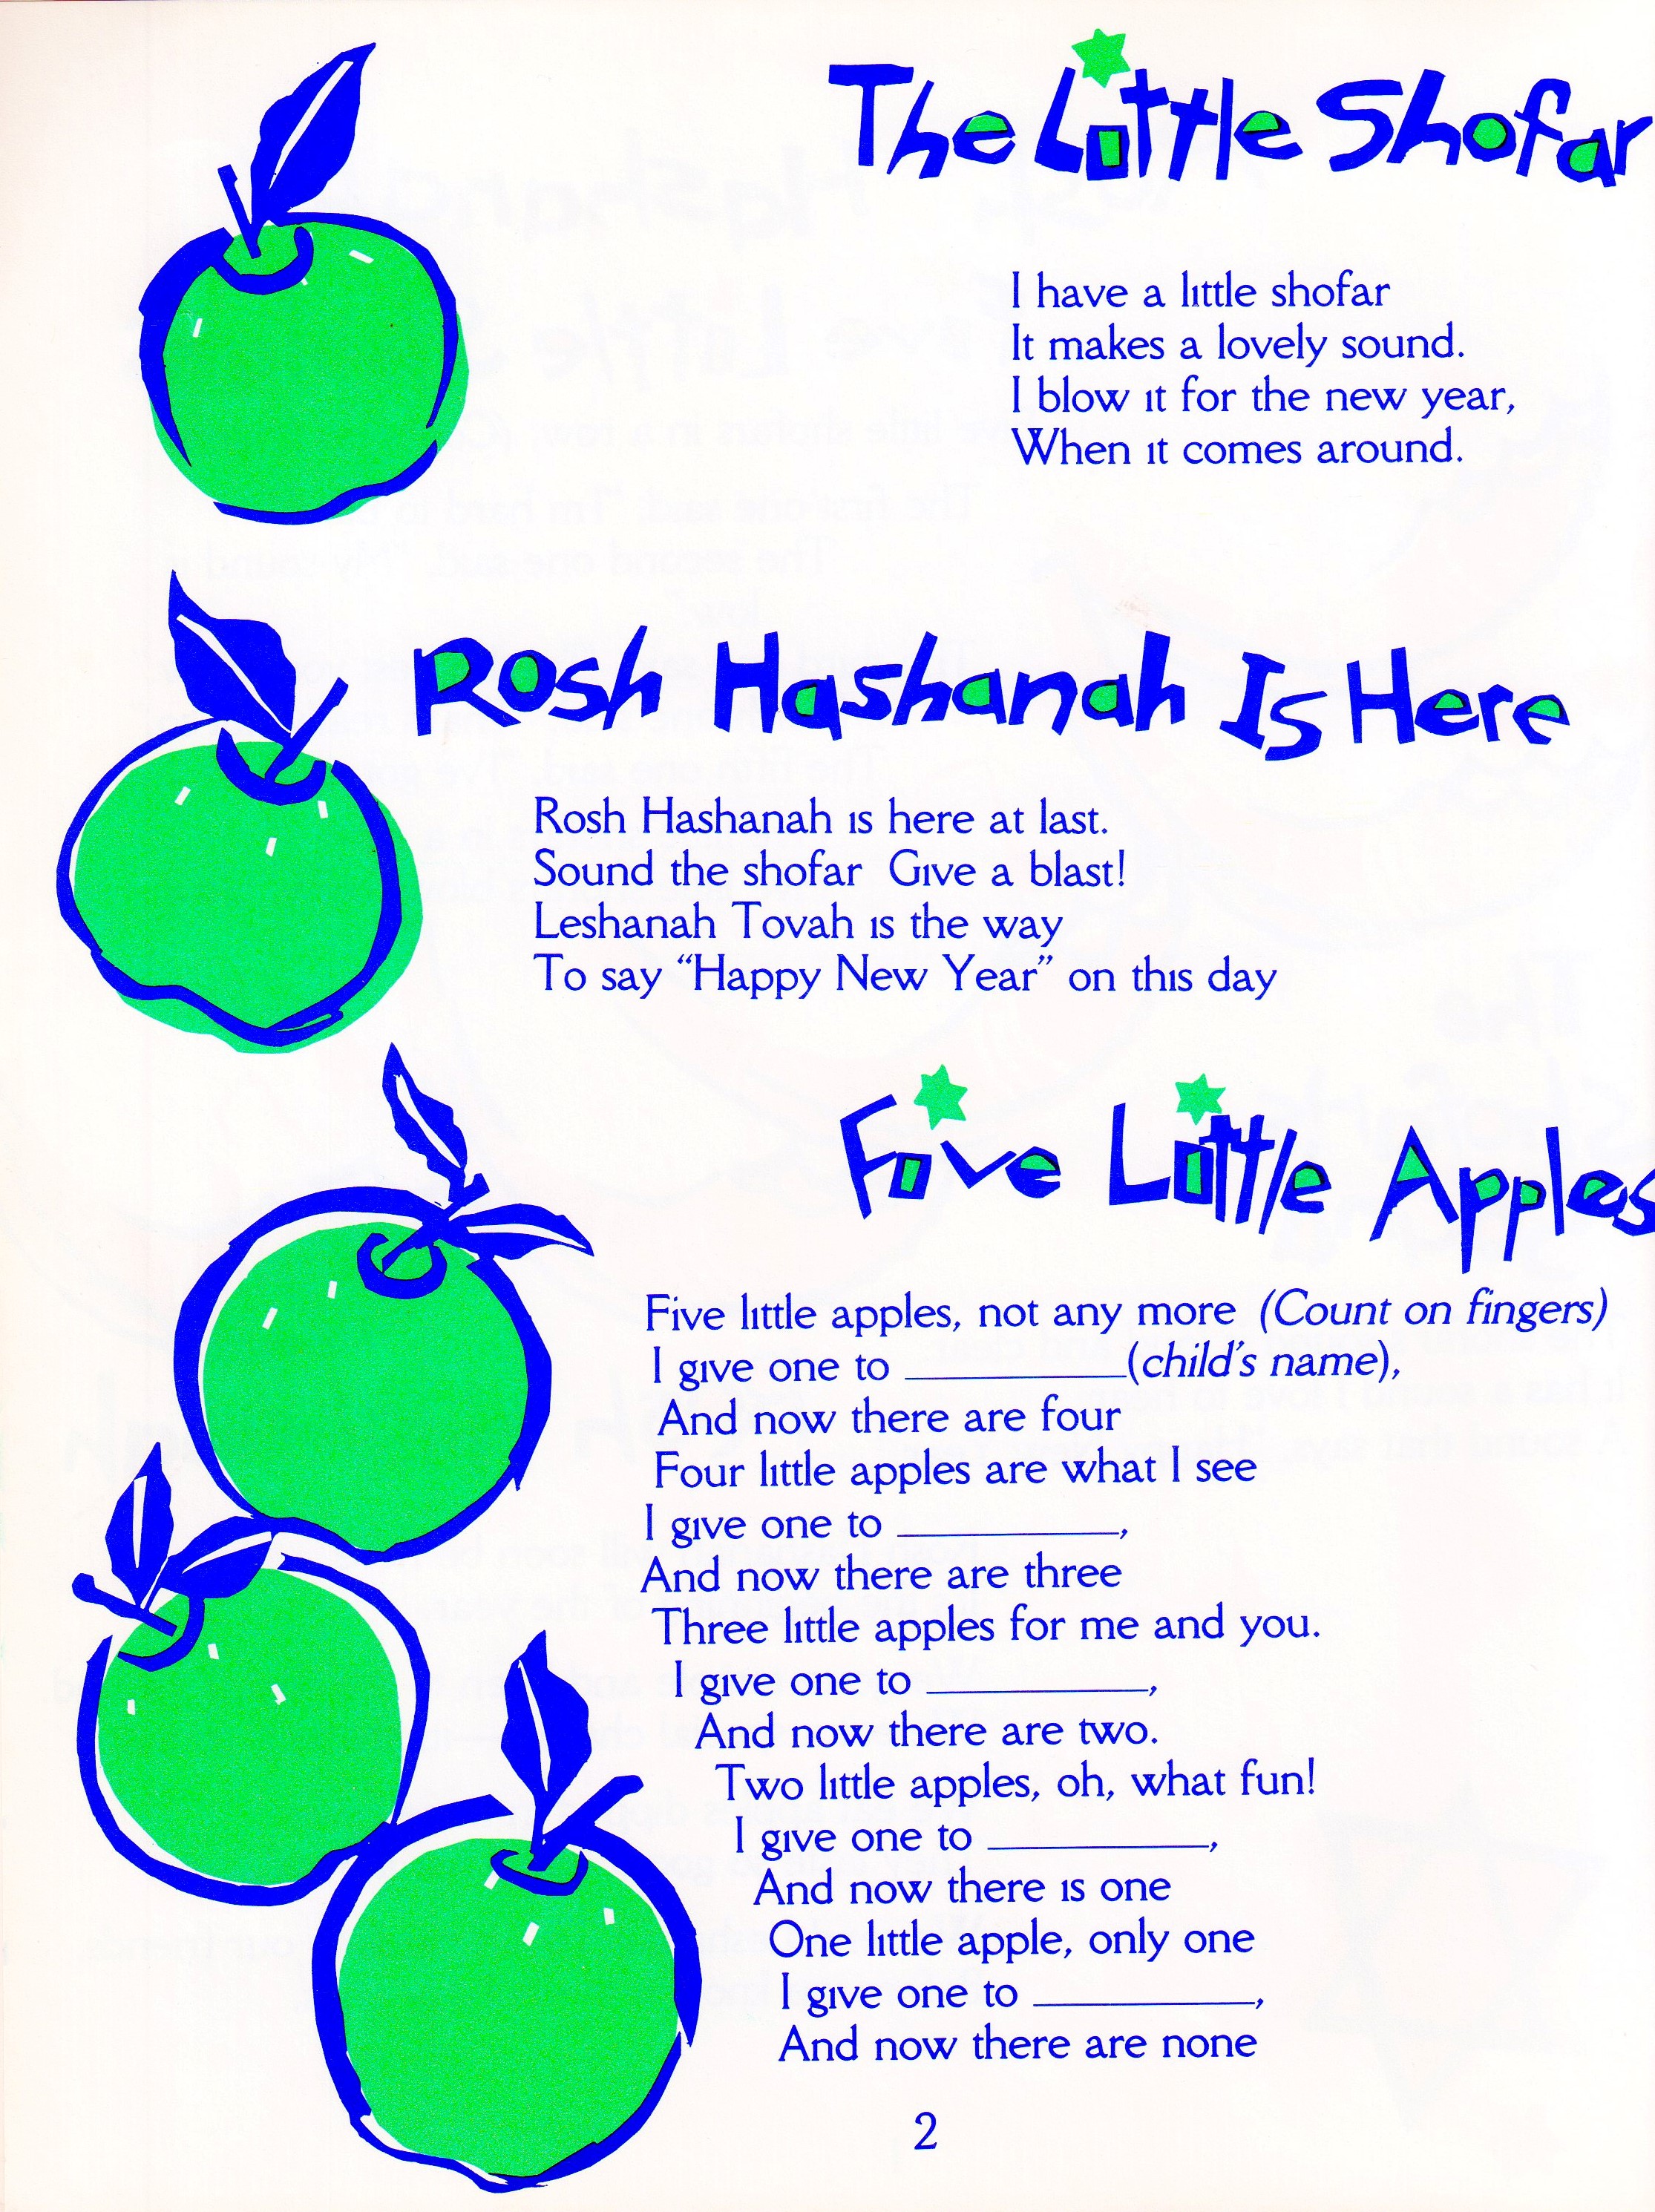 The Little Shofar
I have a little shofar
It makes a lovely sound.
I blow it for the new year,
When it comes around.
Rosh Hashanah Is Here
Rosh Hashanah is here at last.
Sound the shofar Give a blast!
Leshanah Tovah is the way
To say “Happy New Year” on this day
Five Little Apples
Five little apples, not any more (Count on fingers)
I give one to __________(child's name),
And now there are four
Four little apples are what I see
I give one to __________,
And now there are three
Three little apples for me and you.
I give one to __________,
And now there are two.
Two little apples, oh, what fun!
I give one to __________,
And now there is one
One little apple, only one
I give one to __________,
And now there are none
2